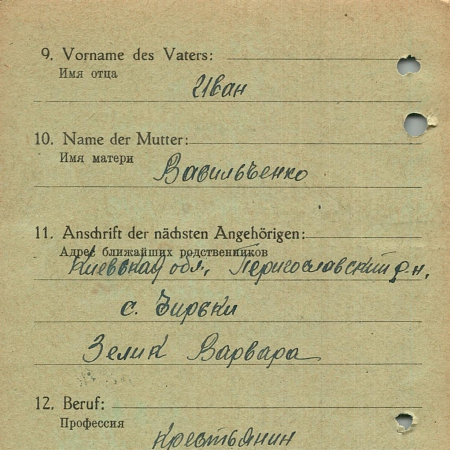 9. Vorname des Vaters:
Имя отца
Иван
10. Name der Mutter:
Имя матери
Васильченко
11. Anschrift der nächsten Angehörigen:
Адрес ближайших родственников
Киевская обл.
с.
Зелик Варвара
12. Beruf:
Профессия
Крестьянин